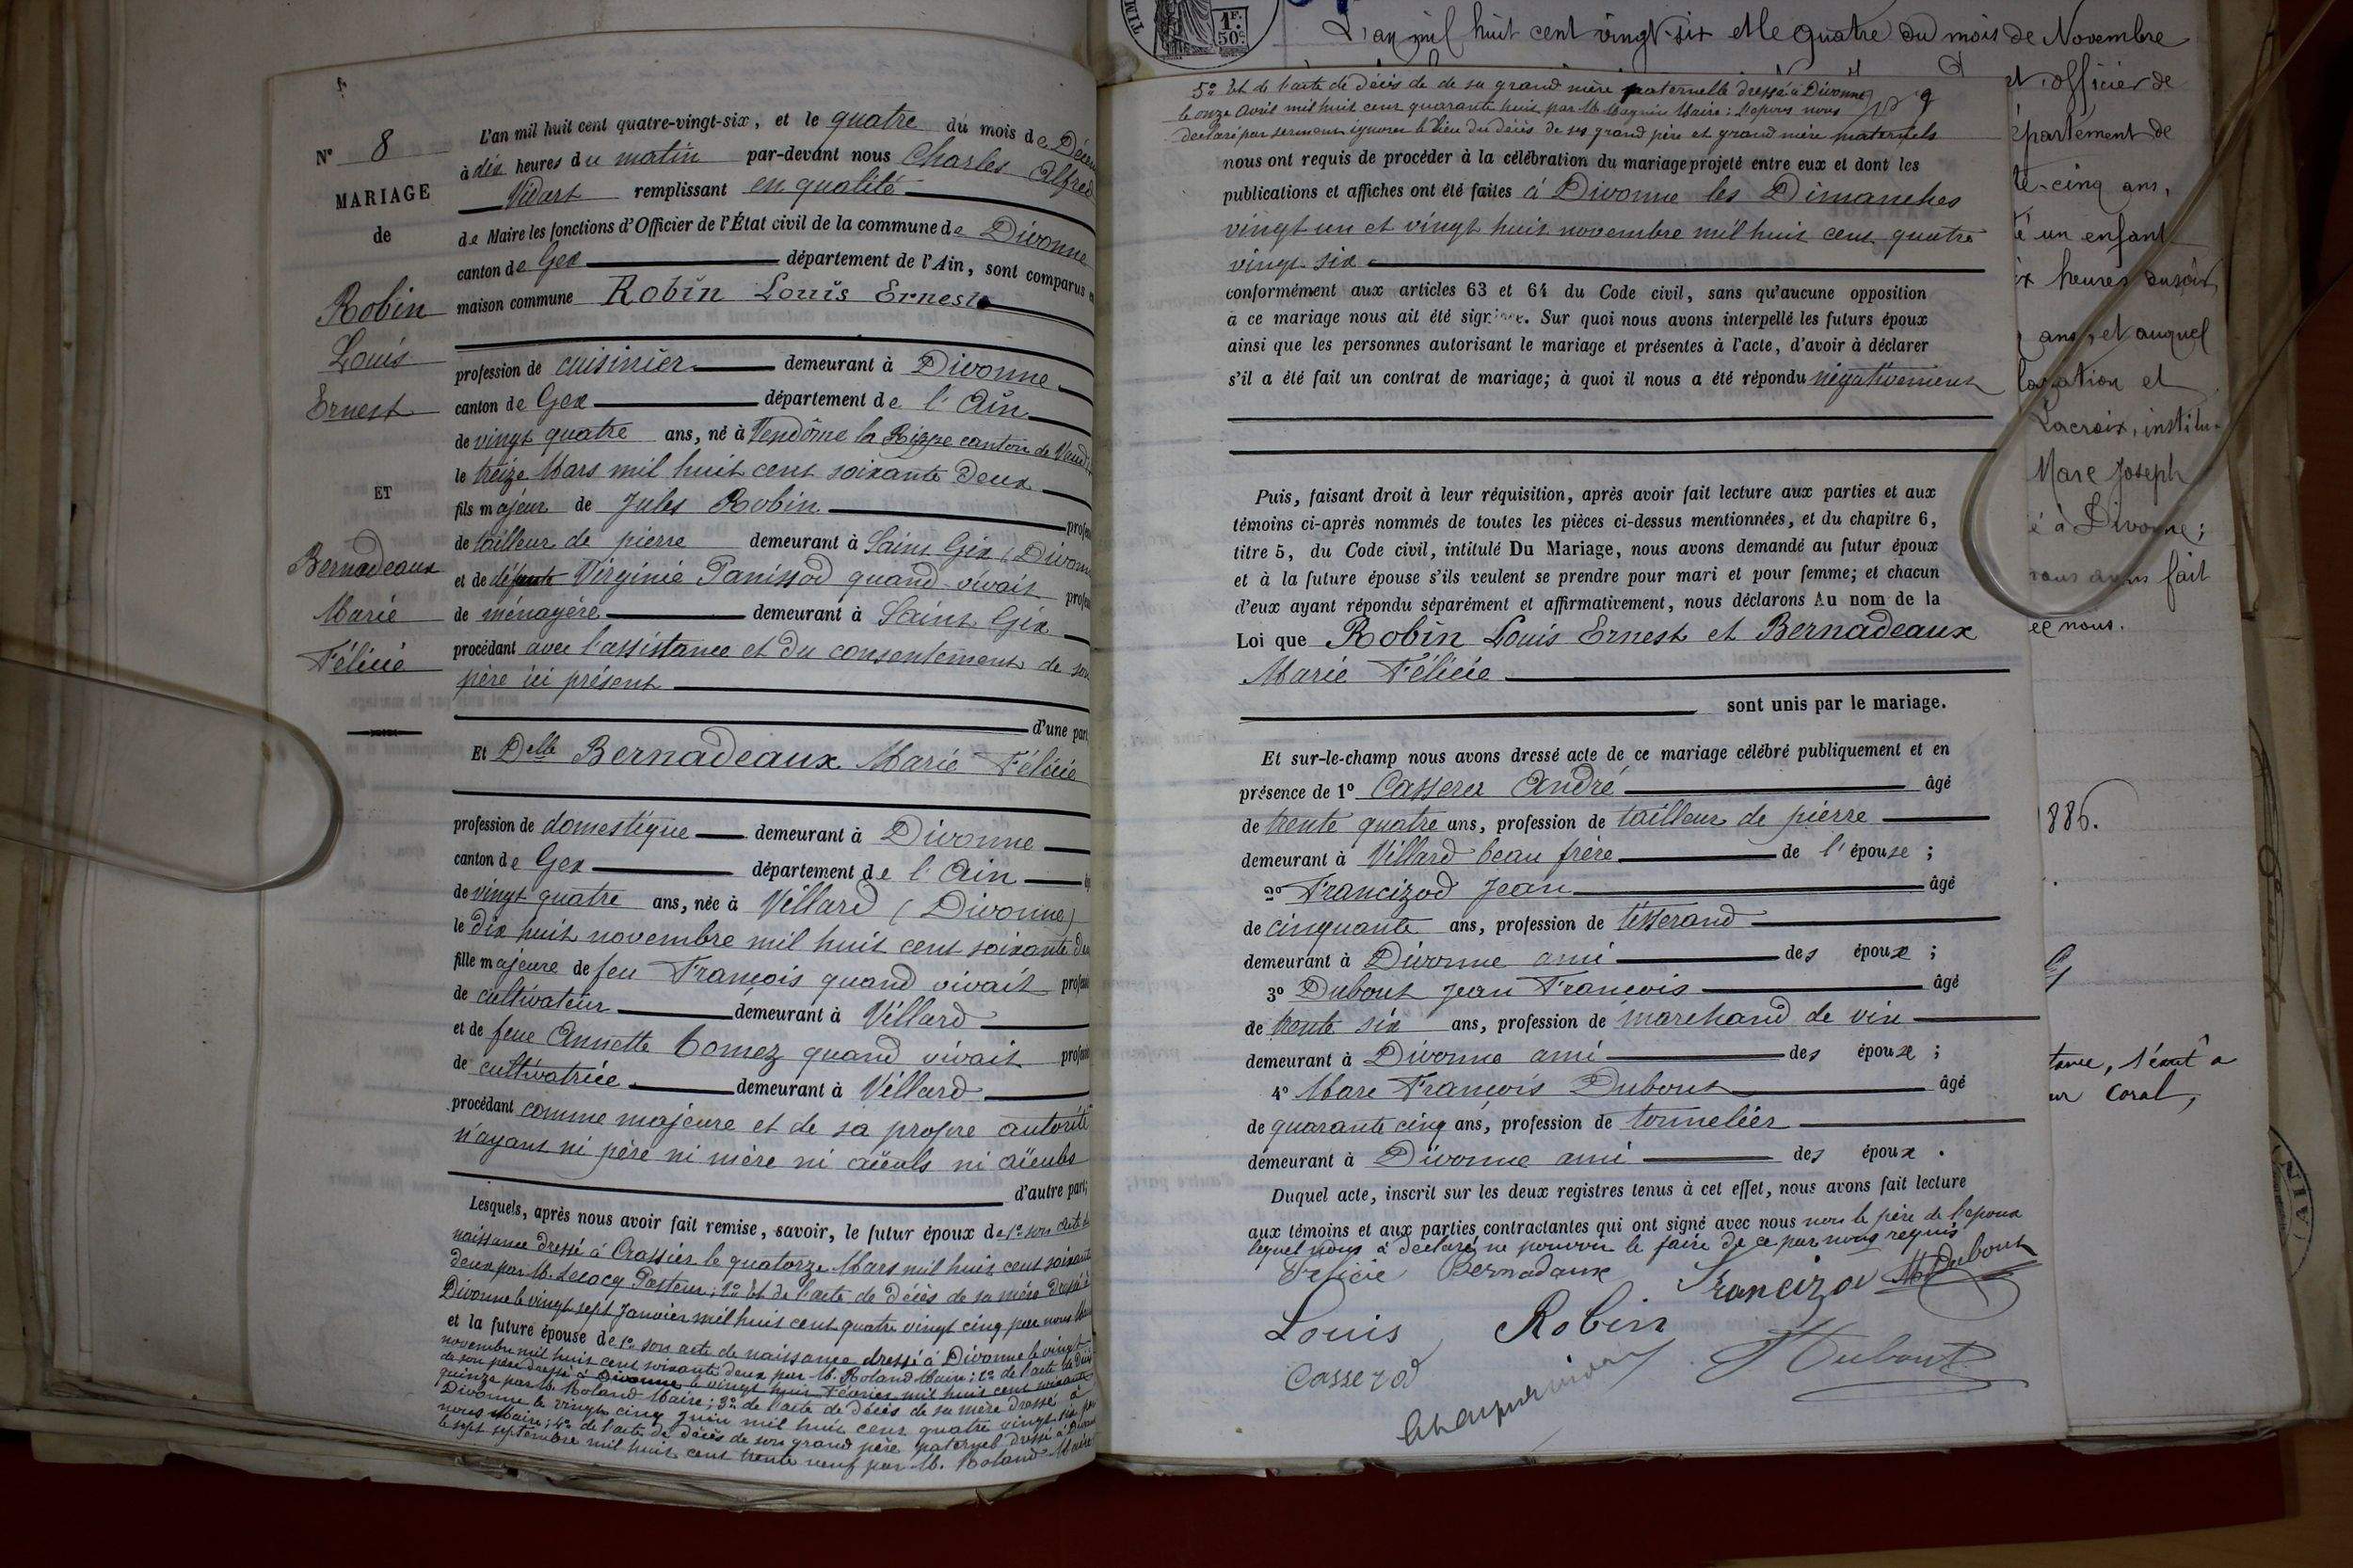 N° 8
MARIAGE
de
Robin
Louis
Ernest
ET
Bernadeaux
Marie
Félicie
L'an mil huit cent quatre-vingt-six, et le quatre du mois de
à dix heures du matin par-devant nous Charles Alfred
Vidart remplissant en qualité
de Maire les fonctions d'Officier de l'État civil de la commune de Divonne
canton de Gex département de l'Ain, sont comparus
maison commune Robin Louis Ernest
profession de cuisinier demeurant à Divonne
canton de Gex département de l'Ain
de vingt quatre ans, né à Vendôme la Rippe canton de
le treize Mars mil huit cent soixante deux
fils majeur de Jules Robin
de tailleur de pierre demeurant à Saint Gix (Divonne
et de défunte Virginie Panissod quand vivait
de ménagère demeurant à Saint Gix
procédant avec l'assistance et du consentement de son
père ici présent
d'une part
Et Delle Bernadeaux Marie Félicie
profession de domestique demeurant à Divonne
canton de Gex département de l'Ain
de vingt quatre ans, née à Villard (Divonne)
le dix huit novembre mil huit cent soixante
fille majeure de feu François quand vivait
de cultivateur demeurant à Villard
et de feue Annette quand vivait
de cultivatrice demeurant à Villard
procédant comme majeure et de sa propre autorité
n'ayant ni père ni mère ni aïeuls ni aïeules
d'autre part;
Lesquels, après nous avoir fait remise, savoir, le futur époux de 1° son acte de
naissance dressé à Crassier le quatorze Mars mil huit cent soixante
deux par M. Lecocq Pasteur; 2° Et de l'acte de décès de sa mère dressé à
Divonne le vingt sept Janvier mil huit cent quatre vingt cinq par nous
et la future épouse de 1° son acte de naissance dressé à Divonne le vingt
novembre mil huit cent soixante deux par M. Roland Maire; 2° de l'acte de décès
de son père dressé à Divonne le vingt huit Février mil huit cent soixante
quinze par M. Roland Maire; 3° de l'acte de décès de sa mère dressé à
Divonne le vingt cinq Juin mil huit cent quatre vingt six par
nous Maire; 4° de l'acte de décès de son grand père paternel dressé à
le sept septembre mil huit cent trente neuf par M. Roland Maire
1F.
50c.
L'an mil huit cent vingt-six et le quatre du mois de Novembre
5° Et de l'acte de décès de de sa grand mère paternelle dressé à Divonne
le onze Avril mil huit cent quarante huit par M. Maire; l'époux nous
déclare par serment ignorer le lieu du décès de ses grand père et grand mère maternels
nous ont requis de procéder à la célébration du mariage projeté entre eux et dont les
publications et affiches ont été faites à Divonne les Dimanches
vingt un et vingt huit novembre mil huit cent quatre
vingt six
conformément aux articles 63 et 64 du Code civil, sans qu'aucune opposition
à ce mariage nous ait été signifiée. Sur quoi nous avons interpellé les futurs époux
ainsi que les personnes autorisant le mariage et présentes à l'acte, d'avoir à déclarer
s'il a été fait un contrat de mariage; à quoi il nous a été répondu négativement
Puis, faisant droit à leur réquisition, après avoir fait lecture aux parties et aux
témoins ci-après nommés de toutes les pièces ci-dessus mentionnées, et du chapitre 6,
titre 5, du Code civil, intitulé Du Mariage, nous avons demandé au futur époux
et à la future épouse s'ils veulent se prendre pour mari et pour femme; et chacun
d'eux ayant répondu séparément et affirmativement, nous déclarons Au nom de la
Loi que Robin Louis Ernest et Bernadeaux
Marie Félicie
sont unis par le mariage.
Et sur-le-champ nous avons dressé acte de ce mariage célébré publiquement et en
présence de 1° Casserer André âgé
de trente quatre ans, profession de tailleur de pierre
demeurant à Villard beau frère de l'épouse;
2° Francizod Jean âgé
de cinquante ans, profession de tisserand
demeurant à Divonne ami des époux;
3° Dubout Jean François âgé
de trente six ans, profession de marchand de vin
demeurant à Divonne ami des époux;
4° Marc François Dubout âgé
de quarante cinq ans, profession de tonnelier
demeurant à Divonne ami des époux.
Duquel acte, inscrit sur les deux registres tenus à cet effet, nous avons fait lecture
aux témoins et aux parties contractantes qui ont signé avec nous non le père de l'époux
lequel nous a déclaré ne pouvoir le faire de ce par nous requis
Felicie Bernadaux Francizod M Dubout
Louis Robin
Casserod
F Dubout
et officier de
épartement de
te-cinq ans,
té un enfant
ix heures du soir
ans, et auquel
laration et
Lacroix, institu-
Marc Joseph
é à Divonne;
nous avons fait
ec nous.
1886.